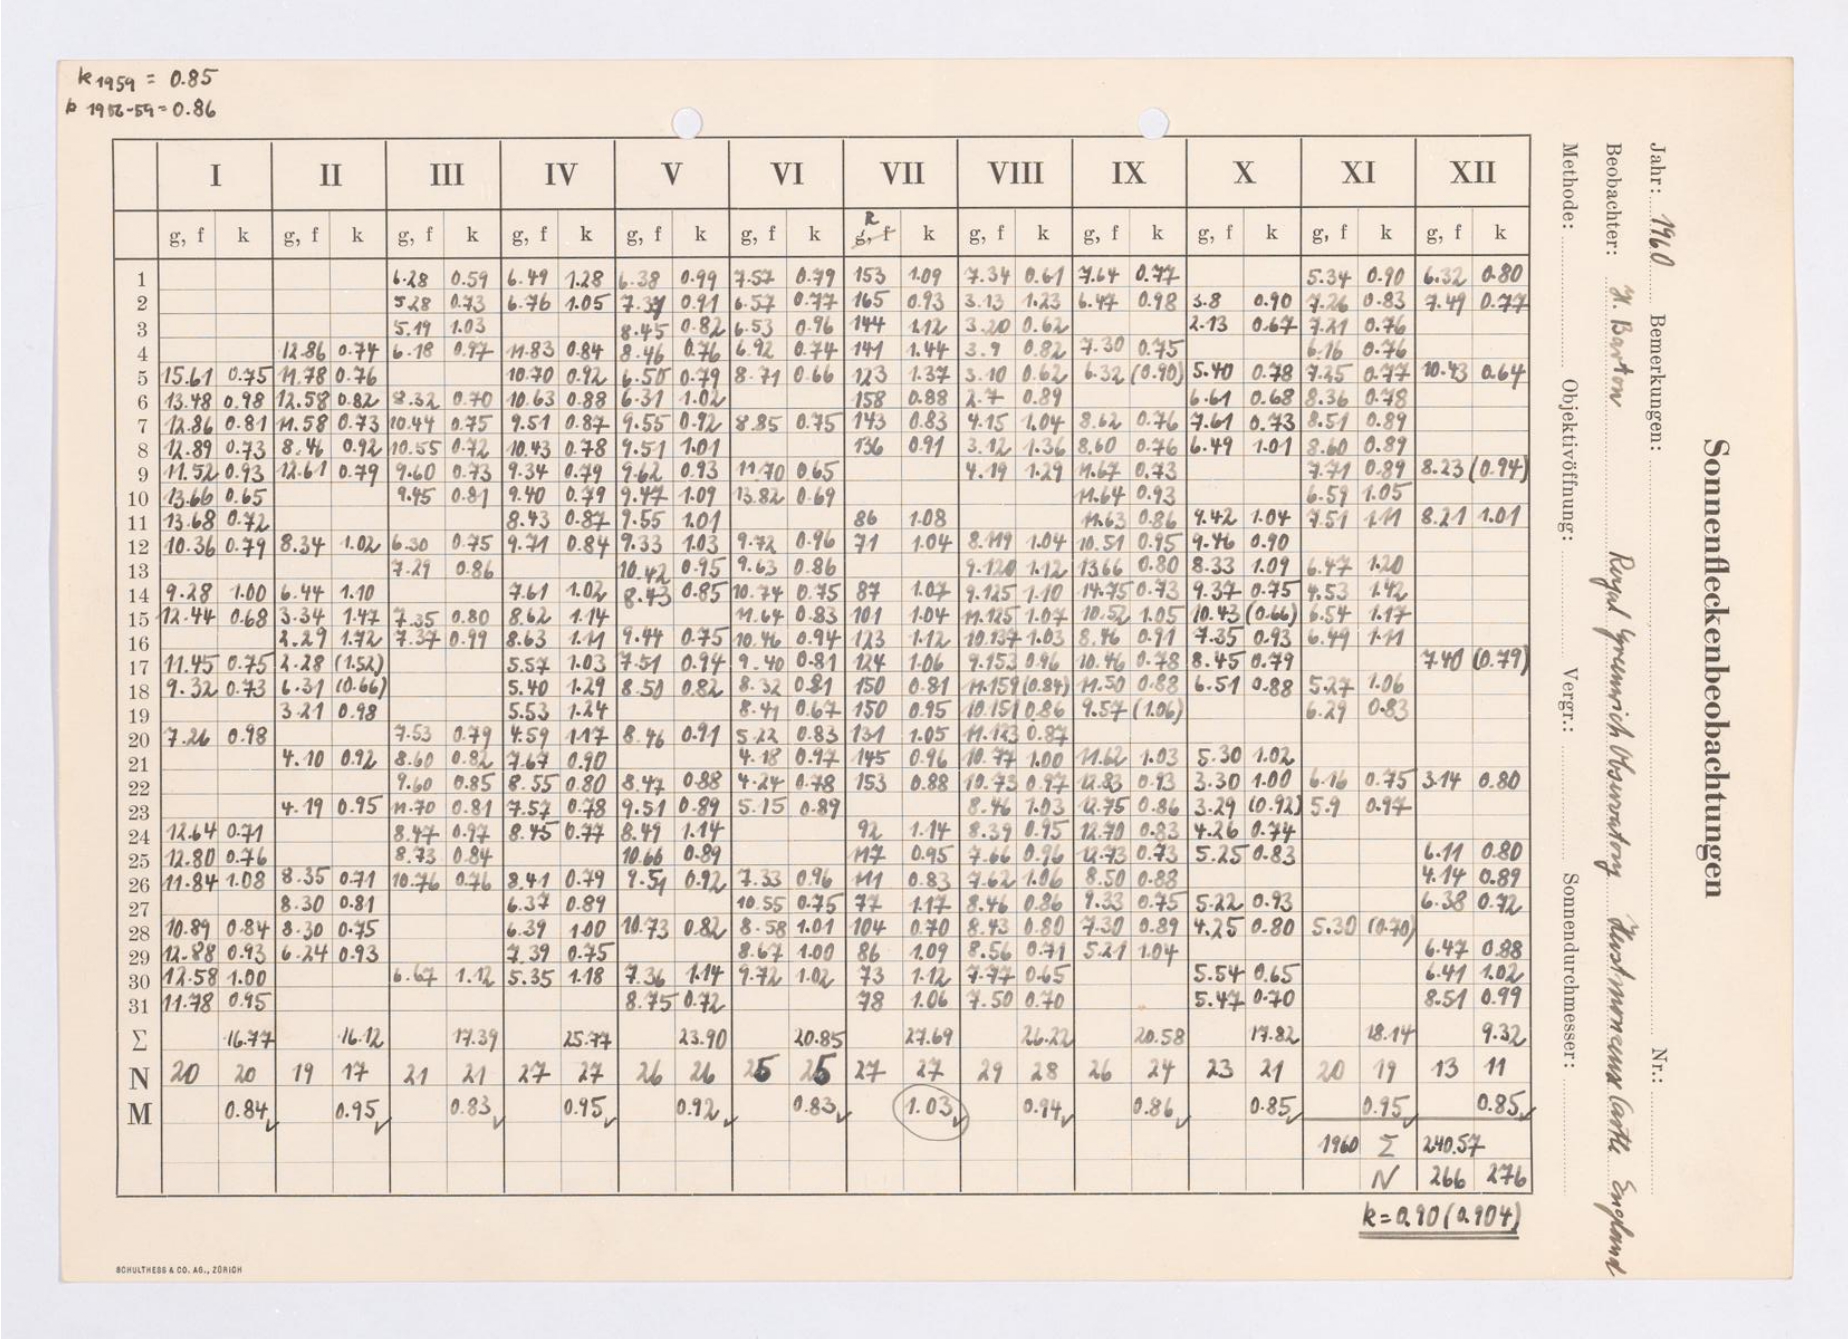 k 1959 = 0.85
k 1956-59 = 0.86
I II III IV V VI VII VIII IX X XI XII
g, f k g, f k g, f k g, f k g, f k g, f k R g, f k g, f k g, f k g, f k g, f k g, f k
1 6.28 0.59 6.49 1.28 6.38 0.99 7.57 0.79 153 1.09 7.34 0.61 7.64 0.77 5.34 0.90 6.32 0.80
2 5.28 0.73 6.76 1.05 7.37 0.91 6.57 0.77 165 0.93 3.13 1.23 6.47 0.98 3.8 0.90 7.26 0.83 7.49 0.77
3 5.19 1.03 8.45 0.82 6.53 0.96 144 1.12 3.20 0.62 2.13 0.67 7.21 0.76
4 12.86 0.74 6.18 0.97 11.83 0.84 8.46 0.76 6.92 0.74 141 1.44 3.9 0.82 7.30 0.75 6.16 0.76
5 15.61 0.75 11.78 0.76 10.70 0.92 6.50 0.79 8.71 0.66 123 1.37 3.10 0.62 6.32 (0.90) 5.40 0.78 7.25 0.77 10.43 0.64
6 13.48 0.98 12.58 0.82 8.32 0.70 10.63 0.88 6.31 1.02 158 0.88 2.7 0.89 6.61 0.68 8.36 0.78
7 12.86 0.81 11.58 0.73 10.44 0.75 9.51 0.87 9.55 0.92 8.85 0.75 143 0.83 4.15 1.04 8.62 0.76 7.61 0.73 8.51 0.89
8 12.89 0.73 8.46 0.92 10.55 0.72 10.43 0.78 9.51 1.01 136 0.91 3.12 1.36 8.60 0.76 6.49 1.01 8.60 0.89
9 11.52 0.93 12.61 0.79 9.60 0.73 9.34 0.79 9.62 0.93 11.70 0.65 4.19 1.29 11.67 0.73 7.71 0.89 8.23 (0.94)
10 13.66 0.65 9.45 0.81 9.40 0.79 9.47 1.09 13.82 0.69 11.64 0.93 6.59 1.05
11 13.68 0.72 8.43 0.87 9.55 1.01 86 1.08 11.63 0.86 9.42 1.04 7.51 1.11 8.21 1.01
12 10.36 0.79 8.34 1.02 6.30 0.75 9.71 0.84 9.33 1.03 9.72 0.96 71 1.04 8.119 1.04 10.51 0.95 9.46 0.90
13 7.29 0.86 10.42 0.95 9.63 0.86 9.120 1.12 13.66 0.80 8.33 1.09 6.47 1.20
14 9.28 1.00 6.44 1.10 7.61 1.02 8.43 0.85 10.74 0.75 87 1.07 9.125 1.10 14.75 0.73 9.37 0.75 4.53 1.42
15 12.44 0.68 3.34 1.47 7.35 0.80 8.62 1.14 11.64 0.83 101 1.04 11.125 1.07 10.52 1.05 10.43 (0.66) 6.54 1.17
16 2.29 1.72 7.37 0.99 8.63 1.11 9.44 0.75 10.46 0.94 123 1.12 10.137 1.03 8.46 0.91 7.35 0.93 6.49 1.11
17 11.45 0.75 2.28 (1.52) 5.57 1.03 7.51 0.94 9.40 0.81 124 1.06 9.153 0.96 10.46 0.78 8.45 0.79 7.40 (0.79)
18 9.32 0.73 6.31 (0.66) 5.40 1.29 8.50 0.82 8.32 0.81 150 0.81 11.159 (0.84) 11.50 0.88 6.51 0.88 5.27 1.06
19 3.21 0.98 5.53 1.24 8.41 0.67 150 0.95 10.151 0.86 9.57 (1.06) 6.29 0.83
20 7.26 0.98 7.53 0.79 4.59 1.17 8.46 0.91 5.22 0.83 131 1.05 11.123 0.87
21 4.10 0.92 8.60 0.82 7.67 0.90 4.18 0.97 145 0.96 10.77 1.00 11.62 1.03 5.30 1.02
22 9.60 0.85 8.55 0.80 8.47 0.88 4.24 0.78 153 0.88 10.73 0.97 12.83 0.93 3.30 1.00 6.16 0.75 3.14 0.80
23 4.19 0.95 11.70 0.81 7.57 0.78 9.51 0.89 5.15 0.89 8.46 1.03 12.75 0.86 3.29 (0.92) 5.9 0.97
24 12.64 0.71 8.47 0.97 8.45 0.77 8.49 1.14 92 1.14 8.39 0.95 12.70 0.83 4.26 0.74
25 12.80 0.76 8.73 0.84 10.66 0.89 117 0.95 7.66 0.96 12.73 0.73 5.25 0.83 6.11 0.80
26 11.84 1.08 8.35 0.71 10.76 0.76 8.41 0.79 9.51 0.92 7.33 0.96 111 0.83 7.62 1.06 8.50 0.88 4.14 0.89
27 8.30 0.81 6.37 0.89 10.55 0.75 77 1.17 8.46 0.86 9.33 0.75 5.22 0.93 6.38 0.72
28 10.89 0.84 8.30 0.75 6.39 1.00 10.73 0.82 8.58 1.01 104 0.70 8.43 0.80 7.30 0.89 4.25 0.80 5.30 (0.70)
29 12.88 0.93 6.24 0.93 7.39 0.75 8.67 1.00 86 1.09 8.56 0.71 5.21 1.04 6.47 0.88
30 12.58 1.00 6.67 1.12 5.35 1.18 7.36 1.14 9.72 1.02 73 1.12 7.77 0.65 5.54 0.65 6.41 1.02
31 11.78 0.95 8.75 0.72 78 1.06 7.50 0.70 5.47 0.70 8.51 0.99
Σ 16.77 16.12 17.39 25.77 23.90 20.85 27.69 26.22 20.58 17.82 18.14 9.32
N 20 20 19 17 21 21 27 27 26 26 25 25 27 27 29 28 26 24 23 21 20 19 13 11
M 0.84 0.95 0.83 0.95 0.92 0.83 1.03 0.94 0.86 0.85 0.95 0.85
1960 Σ 240.57
N 266 276
k = 0.90 (0.904)
SCHULTHESS & CO. AG., ZÜRICH
Sonnenfleckenbeobachtungen
Jahr: 1960 Bemerkungen: Nr.:
Beobachter: H. Barton Royal Greenwich Observatory Herstmonceux Castle England
Methode: Objektivöffnung: Vergr.: Sonnendurchmesser: